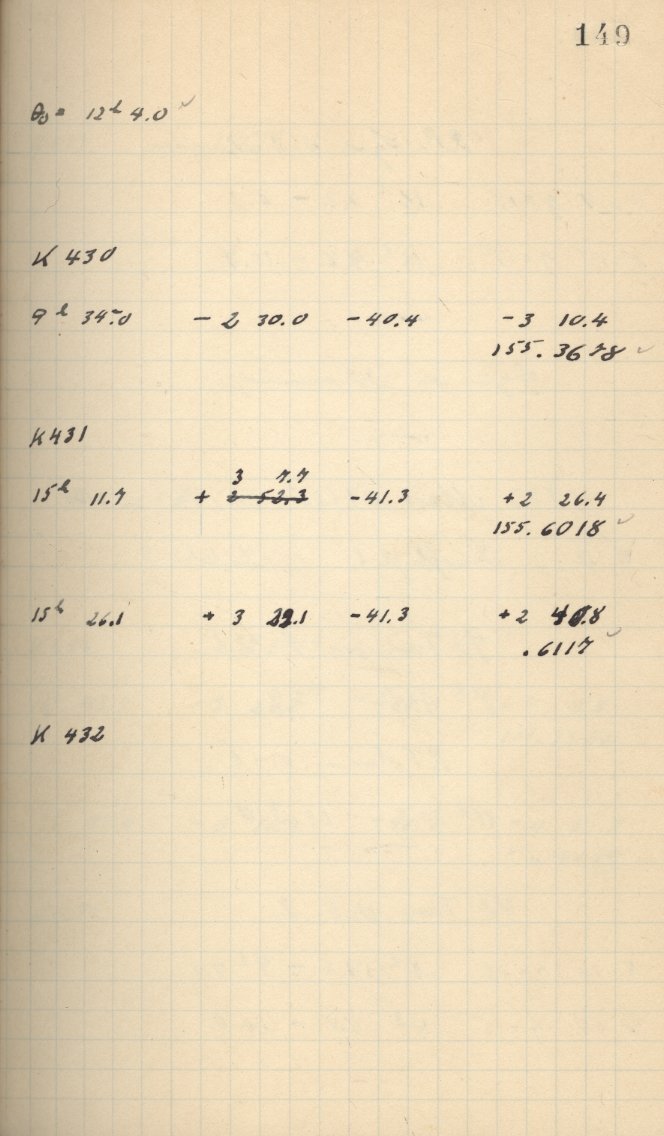 149
θ₀ = 12ʰ 4.0 ✓
K 430
9ʰ 34.0 - 2 30.0 -40.4 - 3 10.4
155.3678 ✓
K 431
3 7.7
15ʰ 11.7 + 2 52.3 -41.3 +2 26.4
155.6018 ✓
15ʰ 26.1 + 3 22.1 -41.3 +2 40.8
.6117 ✓
K 432